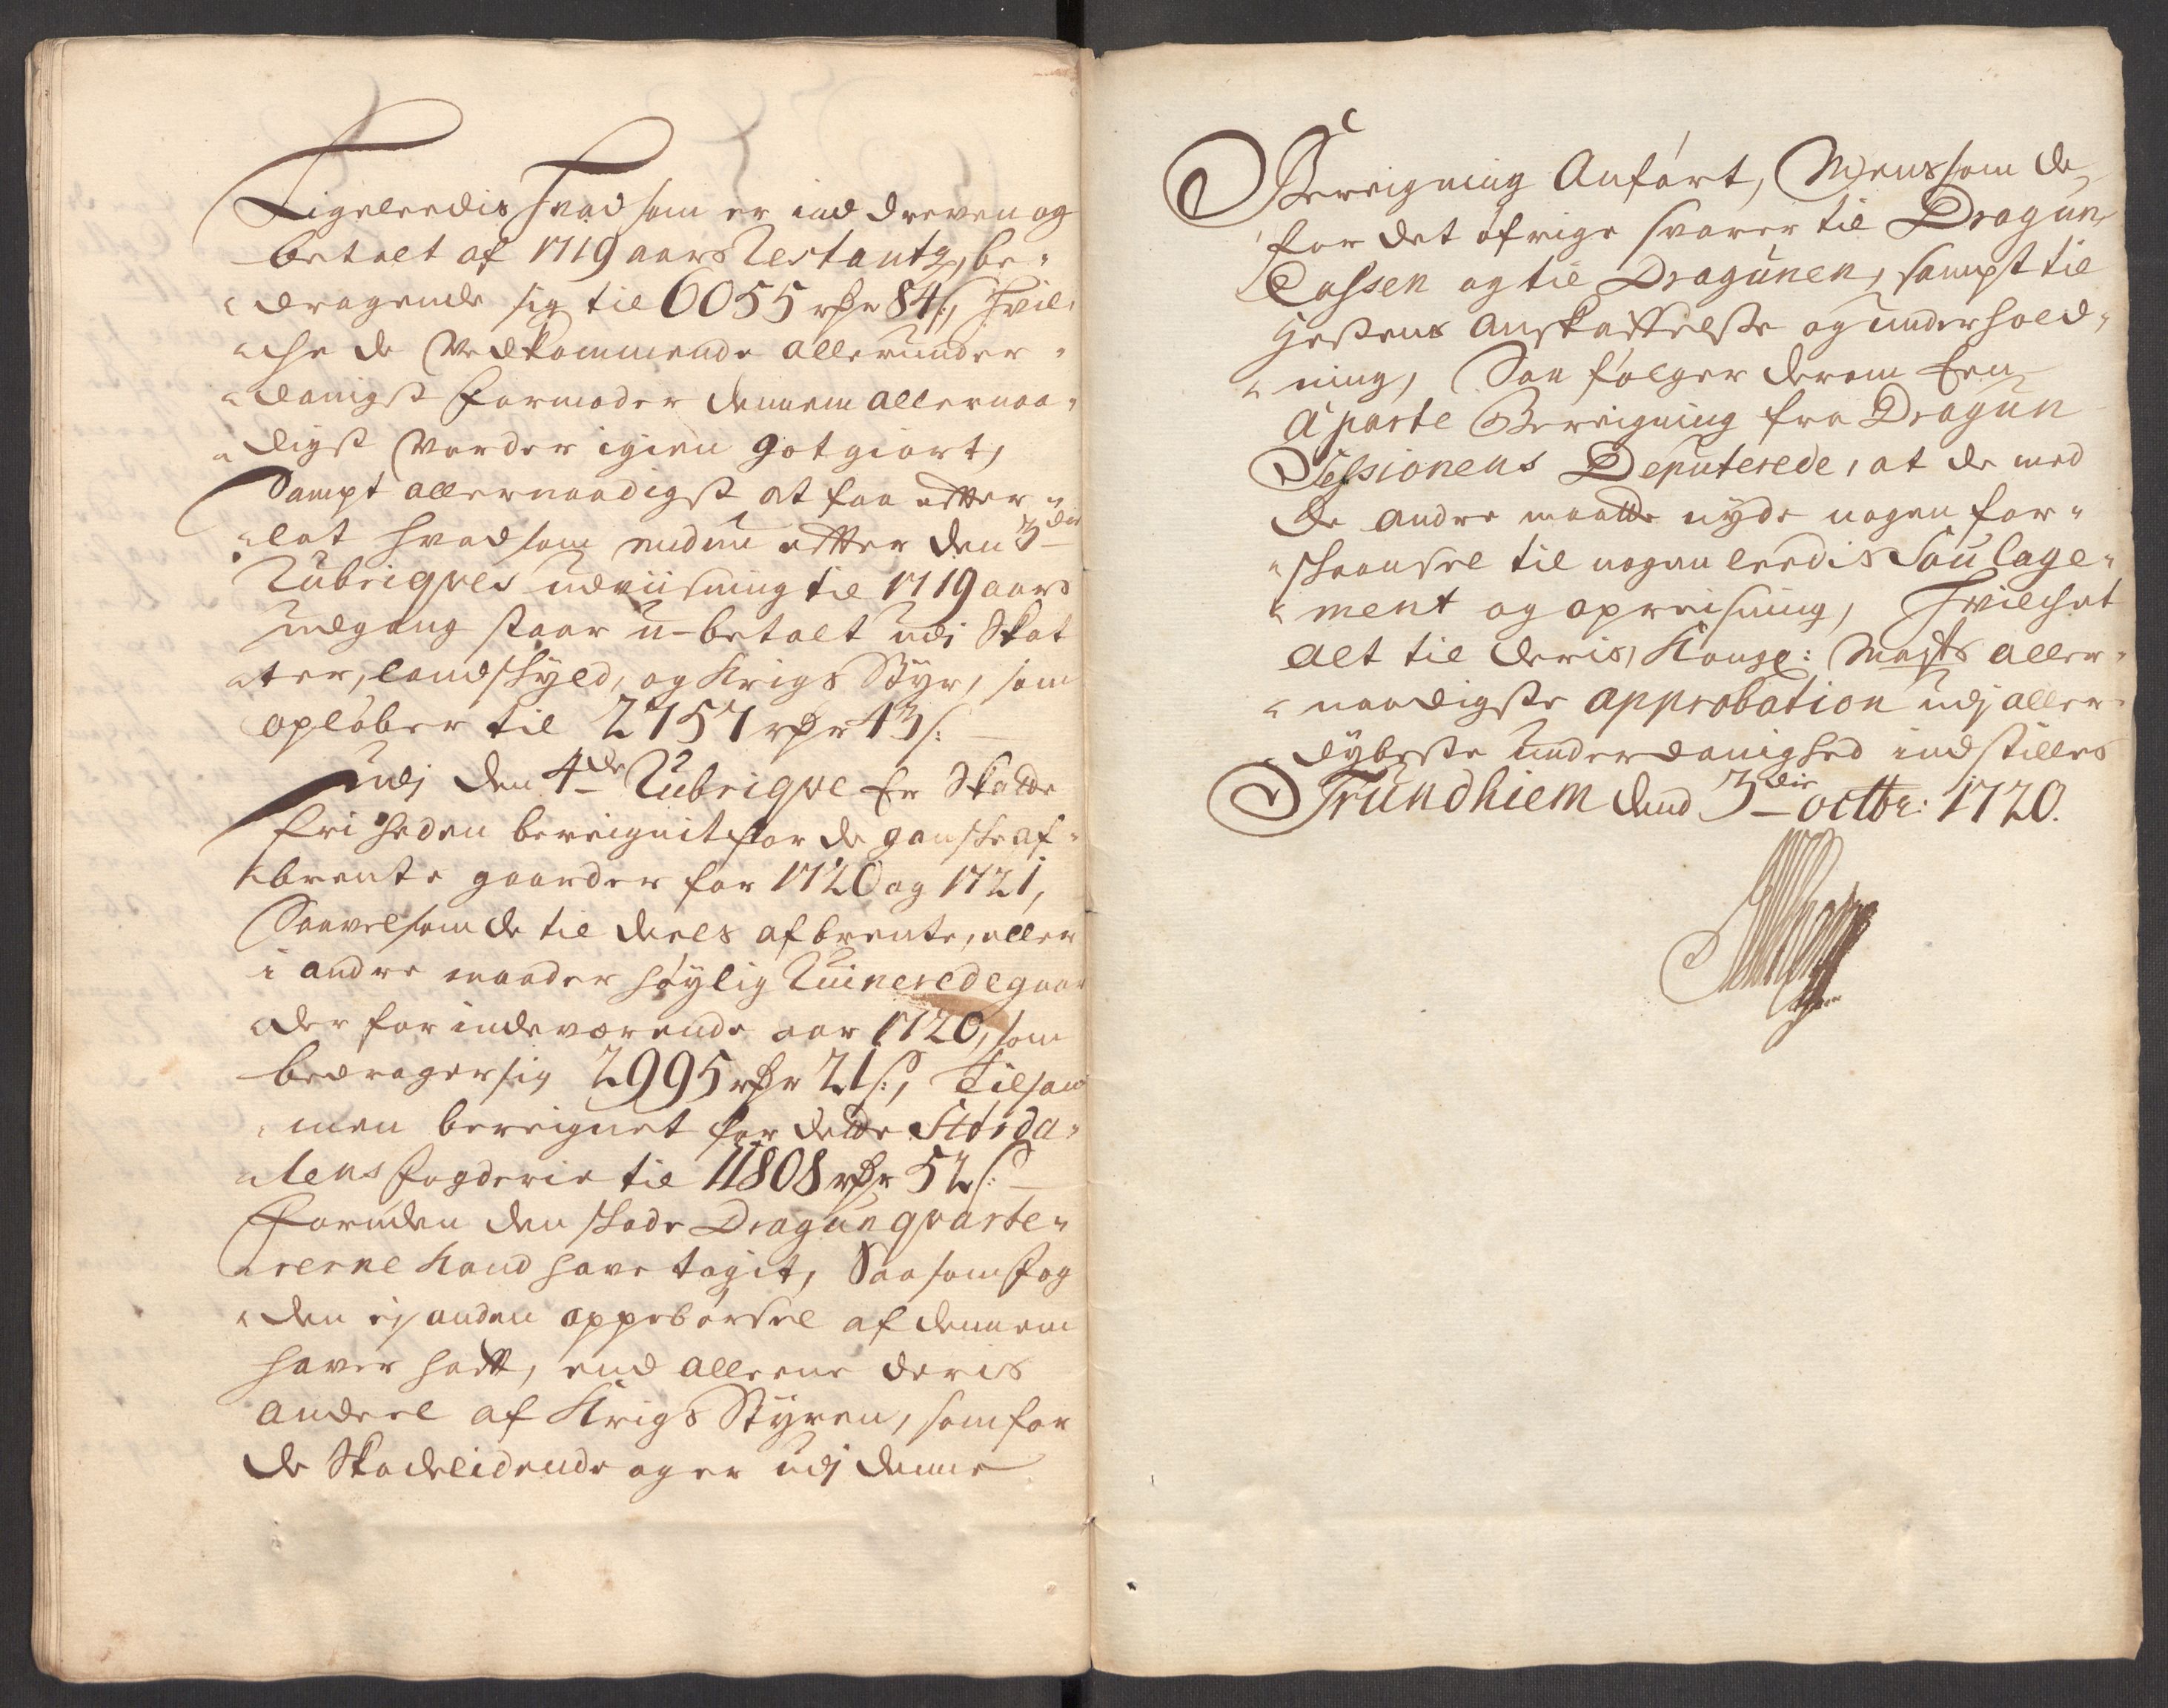 Ligeleedis hvad som er ind dreven og
betalt af 1719 aars Restantz, be-
dragende sig til 6055 rdr 84 s., hvil-
che de Vedkommende allerunder-
danigst formoder dennem allernaa-
digst vorder igien got giort,
Sampt allernaadigst at faa efter-
lat hvad som endnu efter den 3die
Rubriqves udviisning til 1719 aars
udgang staar u-betalt udj Skat
ter, landskyld, og Krigs Styr, som
opløber til 2757 rdr 43 s:
Udj den 4de Rubriqve Er Skatte
friheden bereignit for de ganske af-
brente gaarder for 1720 og 1721,
Saavelsom de til deels afbrente, eller
i andre maader høylig Ruinerede gaar
der for indeværende aar 1720, som
bedrager sig 2995 rdr 21 s:, Tilsam
men bereignet for dette Størda-
lens fogderie til 11808 rdr 52 s:
Foruden den skade Dragunqvarte-
rerne kand have tagit, Saasom fog
den ej anden oppebørsel af dennem
haver hatt, end alleene deris
andeel af Krigs Styren, som for
de Skadelidende og er udj denne
Bereigning Anført, Mens som de
for det øfrige svarer til Dragun
Cassen og til Dragunen, sampt til
Hestens anskaffelsse og underhold-
ning, Saa følger derom Een
à parte Bereigning fra Dragun
Sessionens Deputerede, at de med
de andre maatte nyde nogen for-
skaansel til nogenleedis Soulage-
ment og opreisning, hvilchet
alt til Deris Kongl: Mayts aller-
naadigste approbation udj aller-
dybeste underdanighed indstilles
Trundhiem dend 3die octbr: 1720.